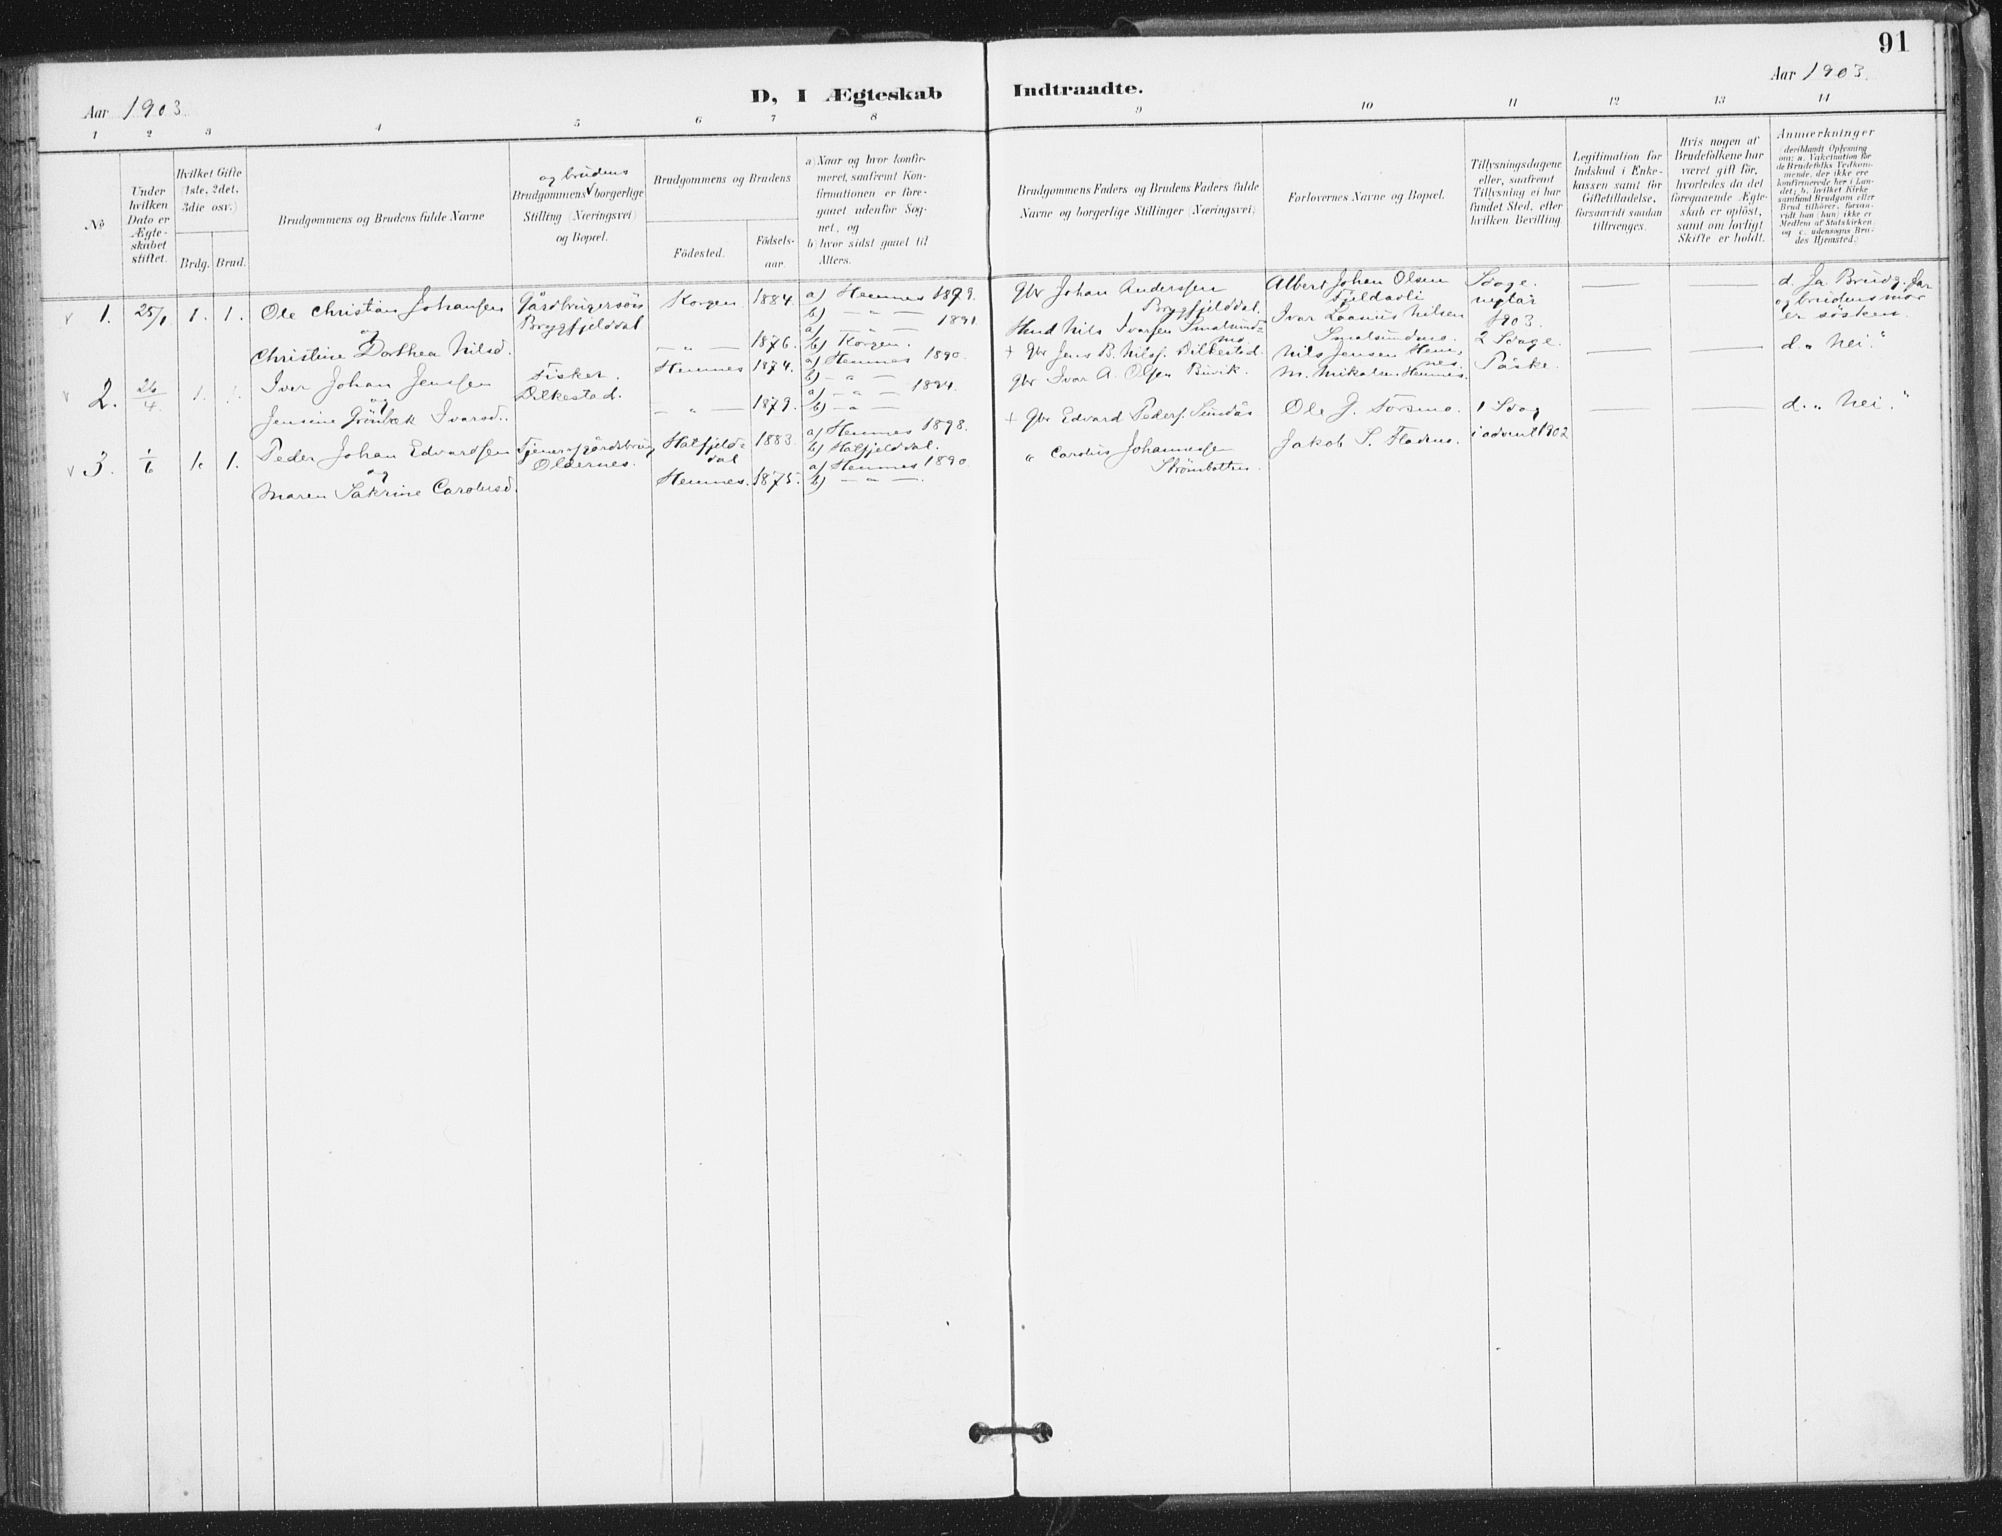 91
Aar 1903.
D, I Ægteskab Indtraadte.
Aar 1903.
1 2 3 4 5 6 7 8 9 10 11 12 13 14
No
Under hvilken Dato er Ægteskabet stiftet.
Hvilket Gifte (1ste, 2det, 3die osv.)
Brdg. Brud.
Brudgommens og Brudens fulde Navne
og brudens
Brudgommens borgerlige Stilling (Næringsvei) og Bopæl.
Brudgommens og Brudens
Födested.
Födselsaar.
a) Naar og hvor konfirmeret, saafremt Konfirmationen er foregaaet udenfor Sognet, og
b) hvor sidst gaaet til Alters.
Brudgommens Faders og Brudens Faders fulde Navne og borgerlige Stillinger (Næringsvei)
Forlovernes Navne og Bopæl.
Tillysningsdagene eller, saafremt Tillysning ei har fundet Sted, efter hvilken Bevilling.
Legitimation for Indskud i Enkekassen samt for Giftetilladelse, forsaavidt saadan tiltrænges.
Hvis nogen af Brudefolkene har været gift för, hvorledes da det foregaaende Ægteskab er oplöst, samt om lovligt Skifte er holdt.
Anmærkninger
(deriblandt Oplysning om: a. Vakcination for de Brudefolks Vedkommende, der ikke ere konfirmerede her i Landet; b. hvilket Kirkesamfund Brudgom eller Brud tilhörer, forsaavidt han (hun) ikke er Medlem af Statskirken, og c. udensogns Brudes Hjemsted.)
1. 25/1 1. 1. Ole Christian Johansen Gårdbrugersön Korgen 1884. a) Hemnes 1899.
og Bryggfjelddal b) — " —
Christine Dorthea Nilsd. — " — 1876. a) — " — 1891.
b) Korgen.
Gbr Johan Anderssen Bryggfjelddal.
Hmd Nils Ivarsen Smalsundmo
Albert Johan Olsen
Ivar Laanus Nilsen Smalsundmo.
Sdage. nytår 1903.
d. Ja Brudg. far og brudens mor er søsken.
2. 26/4 1. 1. Iver Johan Jenssen Fisker. Hemnes 1874. a) Hemnes 1890.
og Dilkestad. b) — " —
Jensine Grönbek Ivarsd. — " — 1879. a) — " — 1894.
b) — " —
+ Gbr Jens B. Nilss. Dilkestad.
Gbr Ivar A. Olsen Buvik.
Nils Jensen Hemnes.
M. Mikalsen Hemnes.
2 Sdage. Påske.
d. " Nei."
3. 1/6 1. 1. Peder Johan Edvardsen Tjener Hatfjelddal 1883. a) Hemnes 1898.
og Oldernes. b) Hatfjelddal.
Maren Sakrine Carolusd. Hemnes. 1875. a) Hemnes 1890
b) — " —
+ Gbr Edvard Peders. Sundås
" Carolus Johannessen Strömbotten.
Ole J. Forsmo.
Jakob S. Flademo.
1 Sdag i advent 1902
d. " Nei."